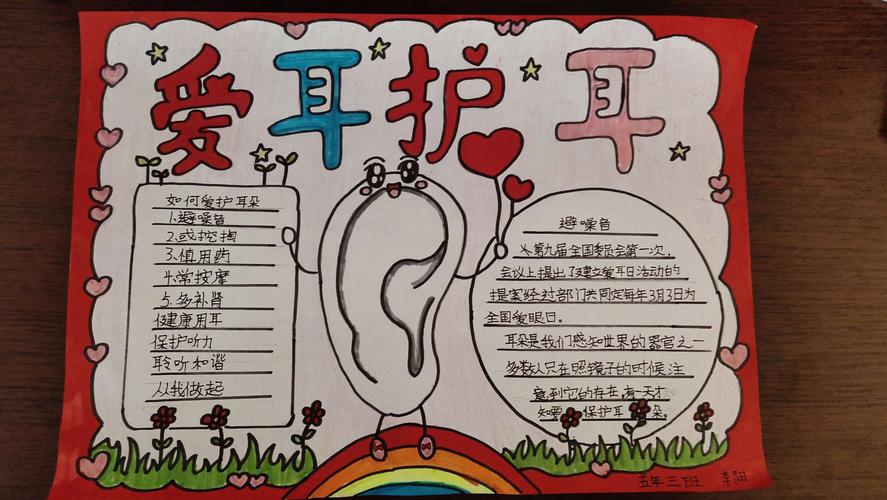 爱耳护耳
如何爱护耳朵
1.避噪音
2.戒挖掏
3.慎用药
4.常按摩
5.多补肾
健康用耳
保护听力
聆听和谐
从我做起
避噪音
第九届全国委员会第一次,
会议上提出了建立爱耳日活动的
提案经过部门共同定每年3月3日为
全国爱眼日。
耳朵是我们感知世界的器官之一
多数人只在照镜子的时候注
意到它的存在,有一天才
知要保护耳朵。
五年三班 李阳